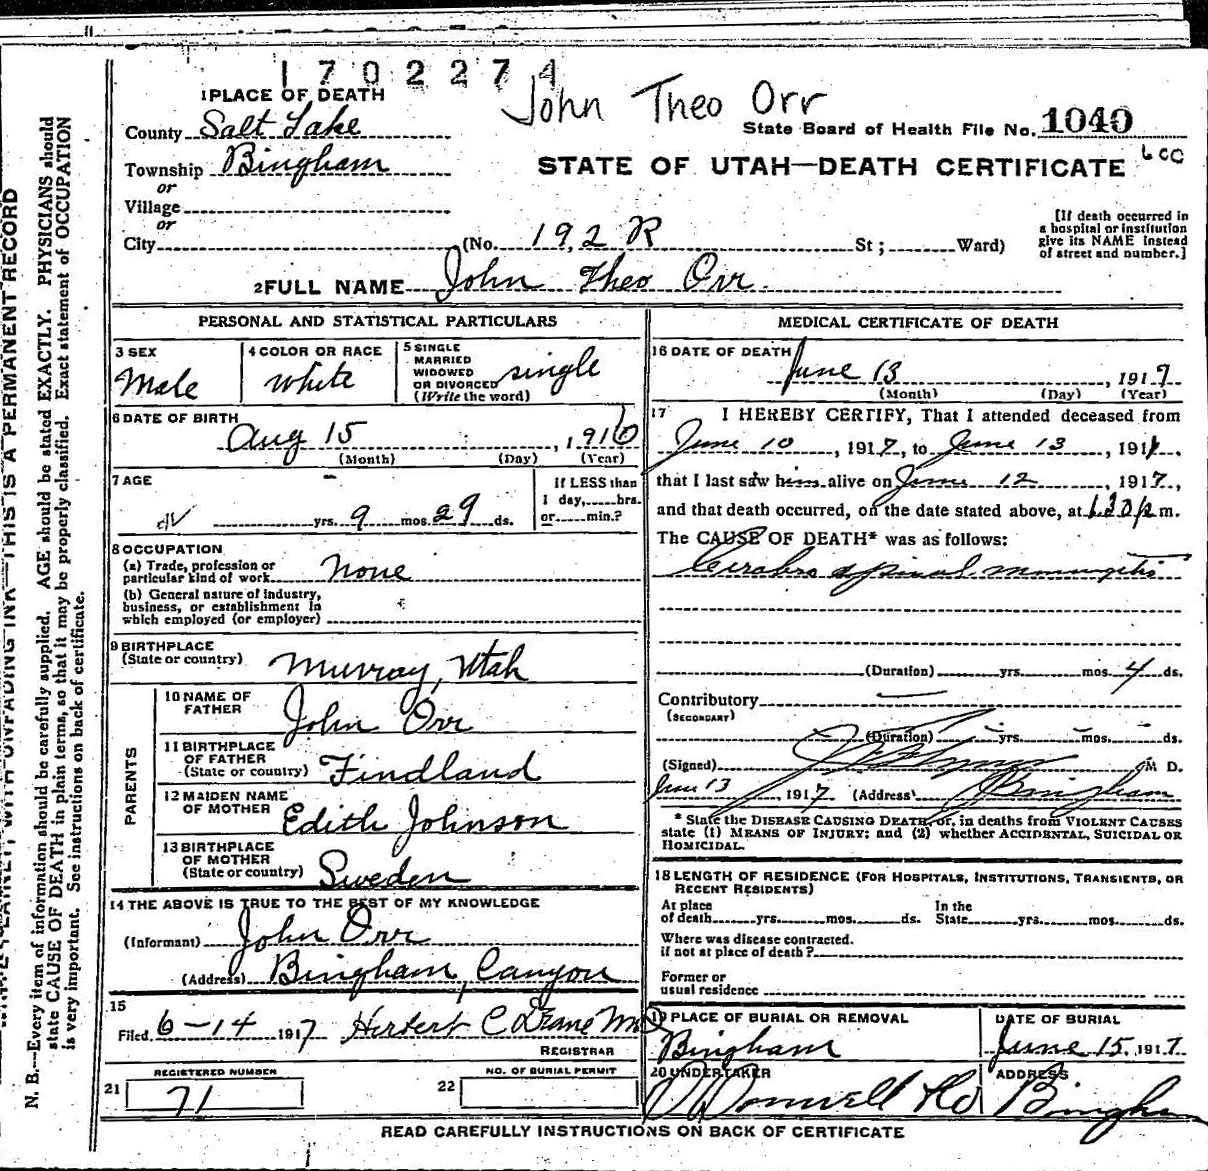 1702274
1 PLACE OF DEATH
John Theo Orr
County Salt Lake
State Board of Health File No. 1040
Township Bingham
STATE OF UTAH—DEATH CERTIFICATE
or
Village
or
City (No. 192 R St; Ward)
[If death occurred in
a hospital or institution
give its NAME instead
of street and number.]
2 FULL NAME John Theo Orr
PERSONAL AND STATISTICAL PARTICULARS
3 SEX
Male
4 COLOR OR RACE
White
5 SINGLE
MARRIED
WIDOWED
OR DIVORCED
(Write the word)
single
6 DATE OF BIRTH
Aug 15, 1916
(Month) (Day) (Year)
7 AGE
yrs. 9 mos. 29 ds.
If LESS than
1 day, hrs.
or min.?
8 OCCUPATION
(a) Trade, profession or
particular kind of work None
(b) General nature of industry,
business, or establishment in
which employed (or employer)
9 BIRTHPLACE
(State or country) Murray, Utah
PARENTS
10 NAME OF
FATHER John Orr
11 BIRTHPLACE
OF FATHER
(State or country) Findland
12 MAIDEN NAME
OF MOTHER Edith Johnson
13 BIRTHPLACE
OF MOTHER
(State or country) Sweden
14 THE ABOVE IS TRUE TO THE BEST OF MY KNOWLEDGE
(Informant) John Orr
(Address) Bingham, Canyon
15
Filed 6-14 1917 Herbert C
REGISTRAR
REGISTERED NUMBER
21 71
NO. OF BURIAL PERMIT
22
MEDICAL CERTIFICATE OF DEATH
16 DATE OF DEATH
June 13, 1917
(Month) (Day) (Year)
17 I HEREBY CERTIFY, That I attended deceased from
June 10, 1917, to June 13, 191
that I last saw him alive on June 12, 1917,
and that death occurred, on the date stated above, at 1.30 p m.
The CAUSE OF DEATH* was as follows:
Cerebro spinal meningitis
(Duration) yrs. mos. 4 ds.
Contributory
(SECONDARY)
(Duration) yrs. mos. ds.
(Signed) M D.
June 13, 1917 (Address) Bingham
* State the DISEASE CAUSING DEATH, or, in deaths from VIOLENT CAUSES
state (1) MEANS OF INJURY; and (2) whether ACCIDENTAL, SUICIDAL OR
HOMICIDAL.
18 LENGTH OF RESIDENCE (FOR HOSPITALS, INSTITUTIONS, TRANSIENTS, OR
RECENT RESIDENTS)
At place
of death yrs. mos. ds.
In the
State yrs. mos. ds.
Where was disease contracted.
if not at place of death?
Former or
usual residence
19 PLACE OF BURIAL OR REMOVAL
Bingham
DATE OF BURIAL
June 15, 1917
20 UNDERTAKER
ADDRESS
Bingham
READ CAREFULLY INSTRUCTIONS ON BACK OF CERTIFICATE
N. B.—Every item of information should be carefully supplied. AGE should be stated EXACTLY. PHYSICIANS should
state CAUSE OF DEATH in plain terms, so that it may be properly classified. Exact statement of OCCUPATION
is very important. See instructions on back of certificate.
WITH UNFADING INK—THIS IS A PERMANENT RECORD